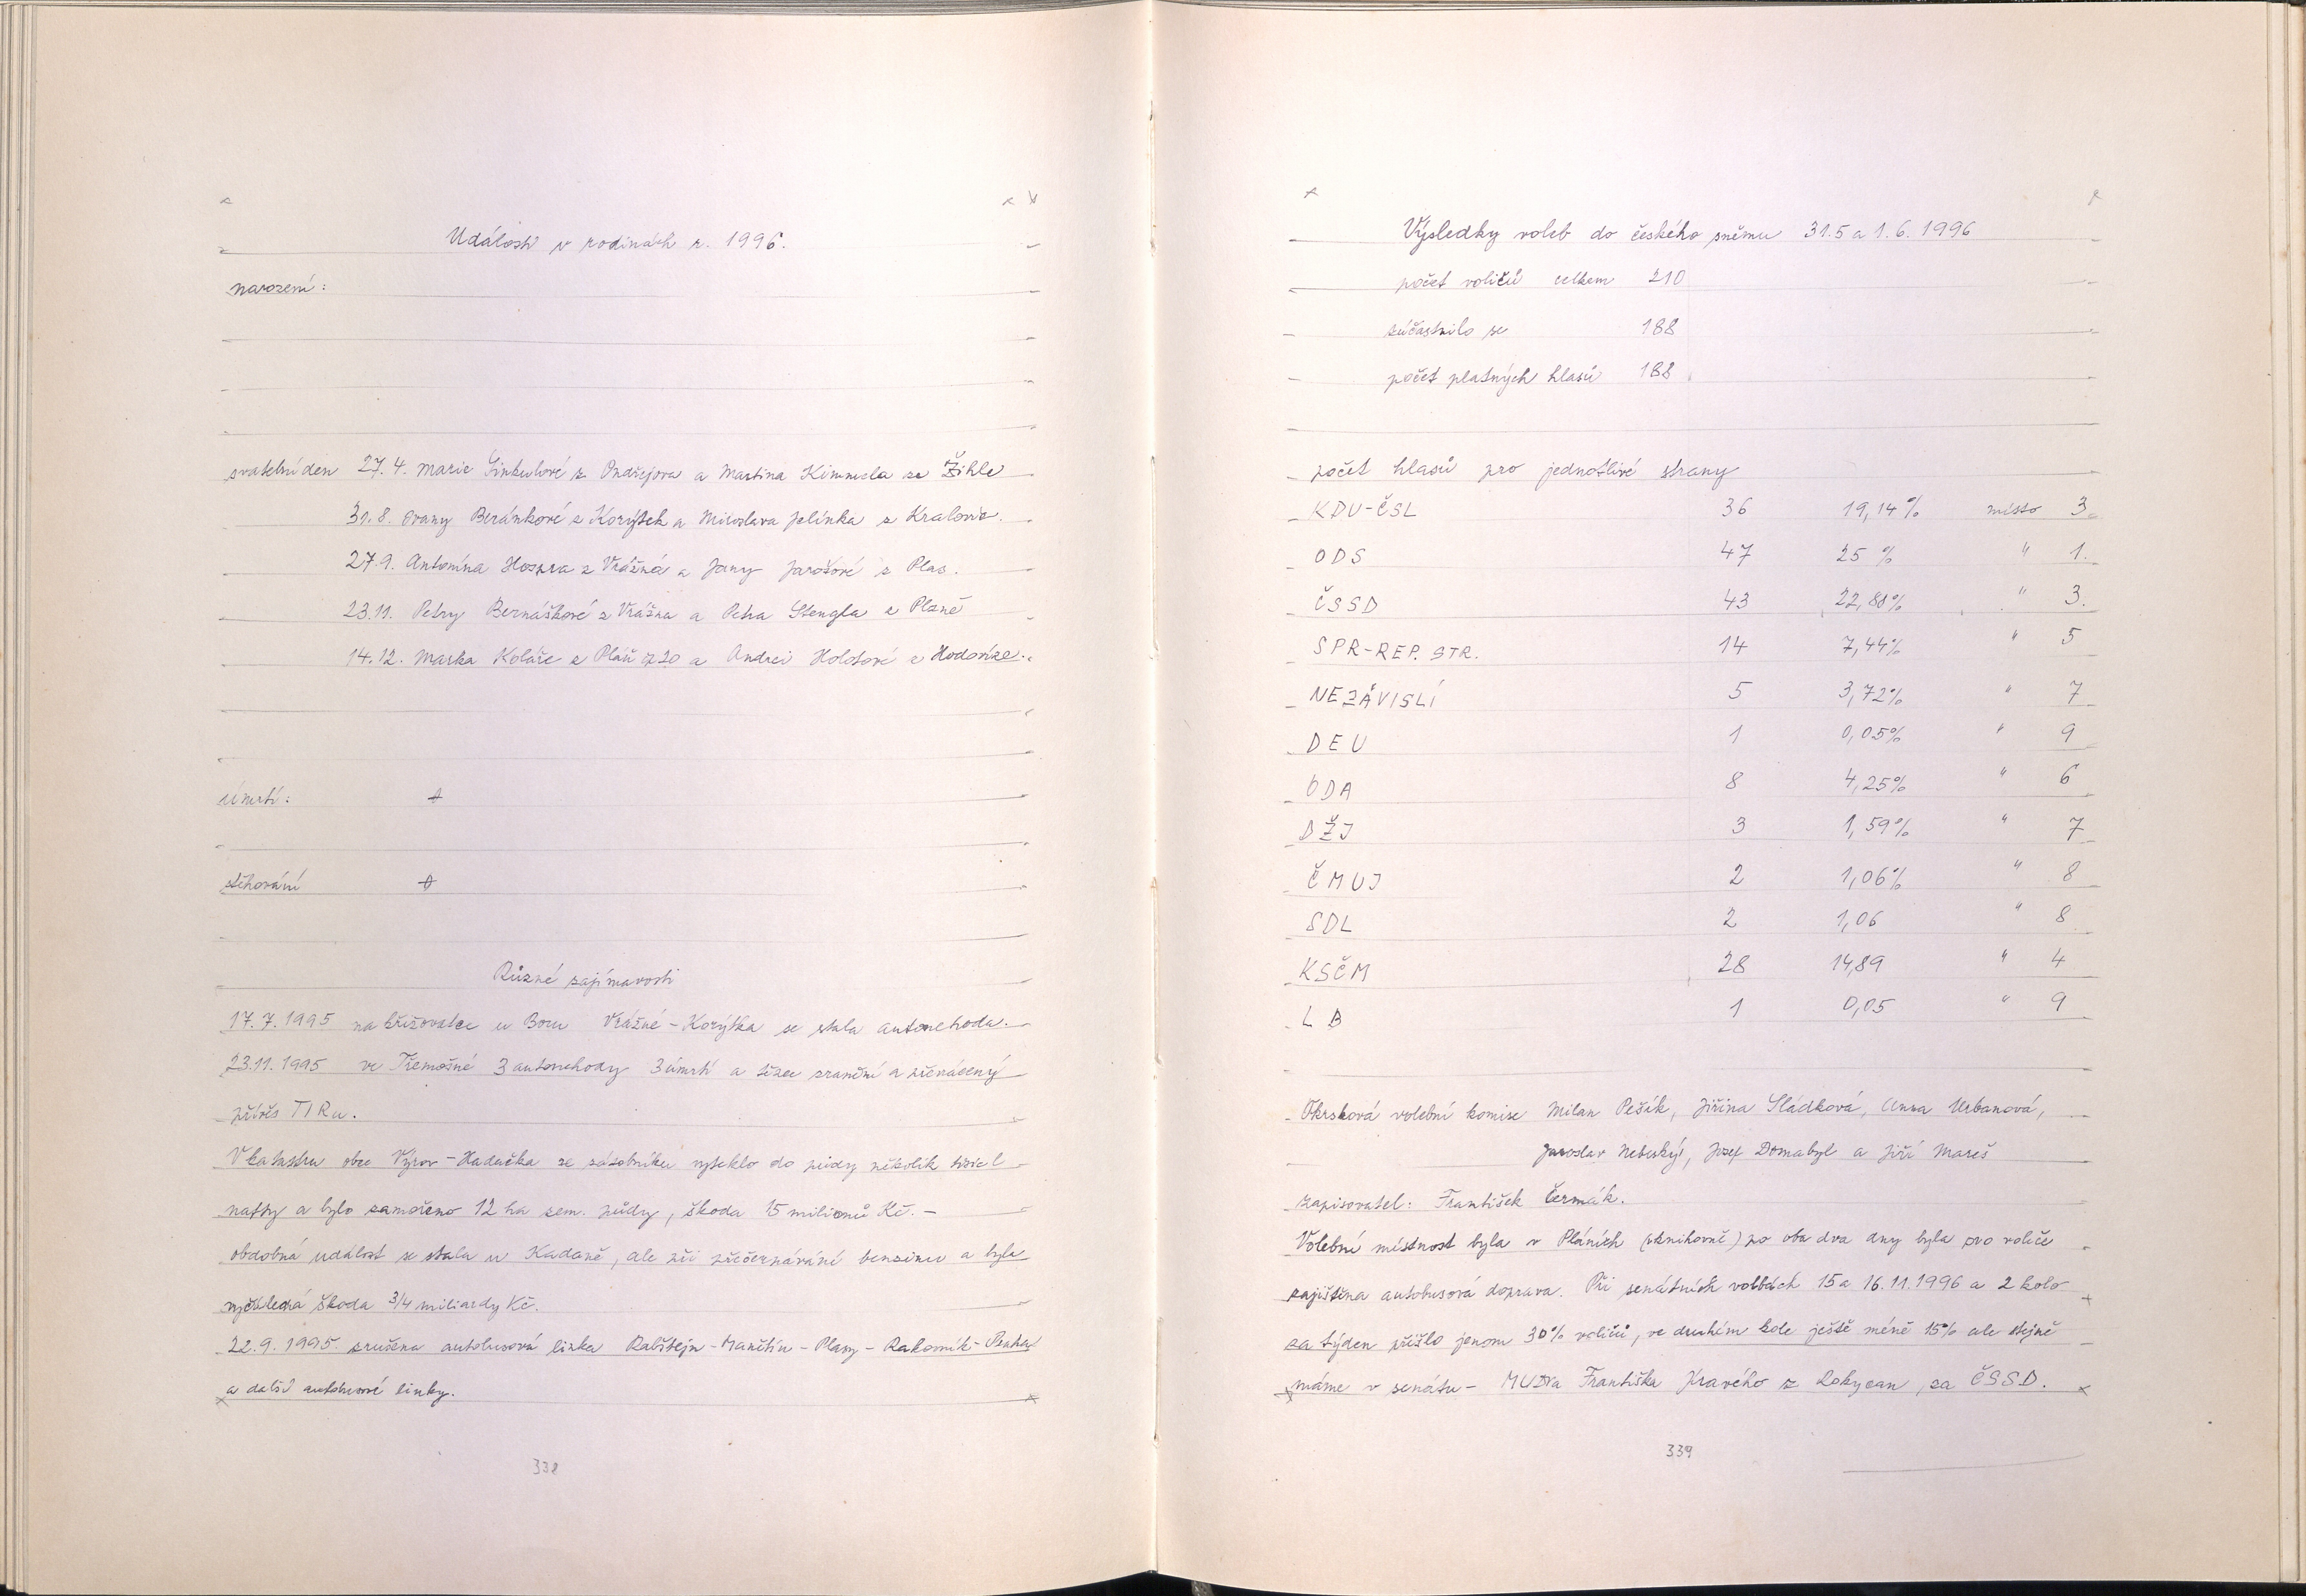 Události v rodinách r. 1996.
narození:
svatební den 27.4. Marie Šinkulové z Ondřejova a Martina Kimmela ze Žihle
31.8. Ivany Beránkové z Korýtek a Miroslava Jelínka z Kralovic.
27.9. Antonína z Vrážná a Jany Jarošové z Plas.
23.11. Petry Bernáškové z Vrážna a Petra Stengla z Plzně
14.12. Marka Koláře z Plání čp 20 a Andrei Holotové z Hodovize.
úmrtí:
stěhování
Různé zajímavosti
17.7.1995 na křižovatce u Boru Vrážné - Korýtka se stala autonehoda.
23.11.1995 ve Třemošné 3 autonehody 3 úmrtí a těžce zranění a převrácený
přívěs TIRu.
V katastru obce Výrov - Hadačka ze zásobníku vyteklo do půdy několik tisíc l
nafty a bylo zamořeno 12 ha zem. půdy, škoda 15 milionů Kč. -
obdobná událost se stala u Kadaně, ale při přečerpávání benzinu a byla
vyčíslená škoda 3/4 miliardy Kč.
22.9.1995. zrušena autobusová linka Rabštejn - Manětín - Plasy - Rakovník - Praha
a další autobusové linky.
338
Výsledky voleb do českého sněmu 31.5 a 1.6. 1996
počet voličů celkem 210
zúčastnilo se 188
počet platných hlasů 188
počet hlasů pro jednotlivé strany
KDU-ČSL 36 19,14% místo 3.
ODS 47 25 % " 1.
ČSSD 43 22,88% " 3.
SPR-REP. STR. 14 7,44% " 5
NEZÁVISLÍ 5 3,72% " 7
DEU 1 0,05% " 9
ODA 8 4,25% " 6
DŽJ 3 1,59% " 7
ČMUJ 2 1,06% " 8
SDL 2 1,06 " 8
KSČM 28 14,89 " 4
LB 1 0,05 " 9
Okrsková volební komise Milan Pešík, Jiřina Sládková, Anna Urbanová,
Jaroslav Nebeský, Josef Domabyl a Jiří Mareš
zapisovatel: František Čermák.
Volební místnost byla v Pláních (v knihovně) po oba dva dny byla pro voliče
zajištěna autobusová doprava. Při senátních volbách 15 a 16.11.1996 a 2 kolo
za týden přišlo jenom 30% voličů, ve druhém kole ještě méně 15% ale stejně
máme v senátu - MUDra Františka Pravého z Rokycan, za ČSSD.
339